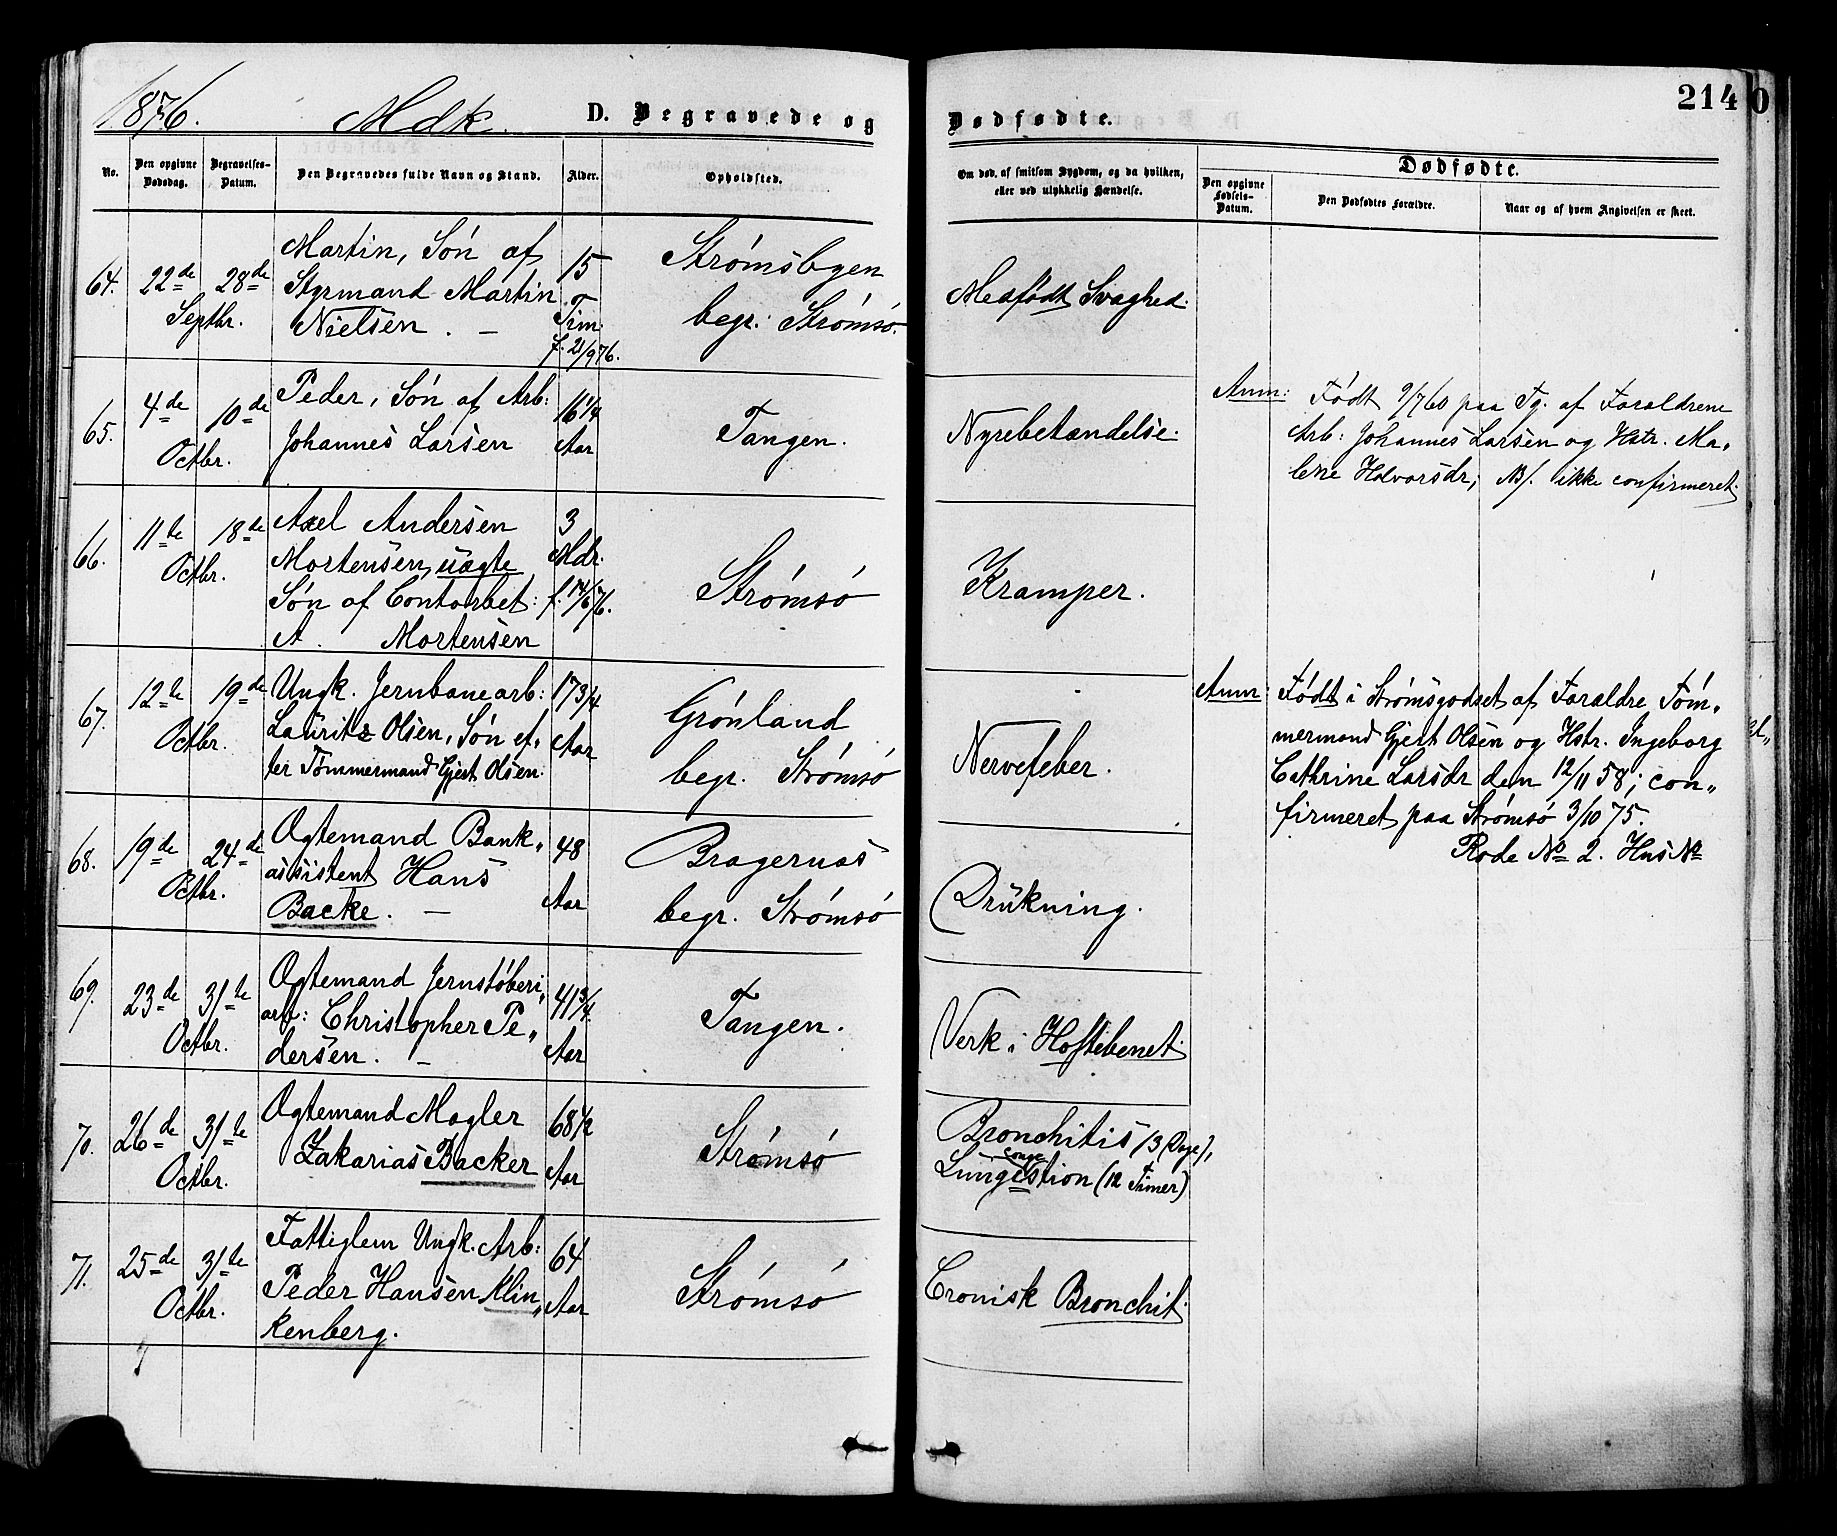 1876. Mdk. D. Begravede og Dødfødte. 214
No.
Den opgivne Dødsdag.
Begravelses-Datum.
Den Begravedes fulde Navn og Stand.
Alder.
Opholdsted.
Om død af smitsom Sygdom, og da hvilken, eller ved ulykkelig Hændelse.
Dødfødte.
Den opgivne Fødsels-Datum.
Den Dødfødtes Forældre.
Naar og af hvem Angivelsen er skeet.
64. 22de 28de Septbr.
Martin, Søn af
Styrmand Martin
Nielsen. —
15 Tim. f. 21/9 76.
Strømsbyen
begr. Strømsø.
Medfødt Svaghed.
65. 4de 10de Octbr.
Peder, Søn af Arb:
Johannes Larsen
16 1/4 Aar
Tangen.
Nyrebetændelse.
Anm: Født 9/7 60 paa Tg. af Forældrene
Arb: Johannes Larsen og Hstr. Ma„
lene Halvorsdr, NB. ikke confirmeret.
66. 11te 18de Octbr.
Axel Andersen
Mortensen, uægte
Søn af Contorbet:
A. Mortensen
3 Mdr. f. 14/6 76.
Strømsø
Kramper.
67. 12te 19de Octbr.
Ungk. Jernbanearb:
Lauritz Olsen, Søn ef„
ter Tømmermand Gjert Olsen.
17 3/4 Aar
Grønland
begr. Strømsø
Nervefeber.
Anm: Født i Strømsgodset af Forældre Tøm„
mermand Gjert Olsen og Hstr. Ingeborg
Cathrine Larsdr den 12/11 58; con„
firmeret paa Strømsø 3/10 75.
Rode No 2. Hus No
68. 19de 24de Octbr.
Ogtemand Bank„
assistent Hans
Backe. —
48 Aar
Bragernæs
begr. Strømsø
Drukning.
69. 23de 31te Octbr.
Ogtemand Jernstøberi„
arb: Christopher Pe„
dersen. —
41 3/4 Aar
Tangen.
Verk i Hoftebenet.
70. 26de 31te Octbr.
Ogtemand Mægler
Zakarias Backer
68 1/2 Aar
Strømsø
Bronchitis (3 Dage),
Lungecongestion (12 Timer)
71. 25de 31te Octbr.
Fattiglem Ungk. Arb:
Peder Hansen Klin„
kenberg.
64 Aar
Strømsø
Cronisk Bronchit.